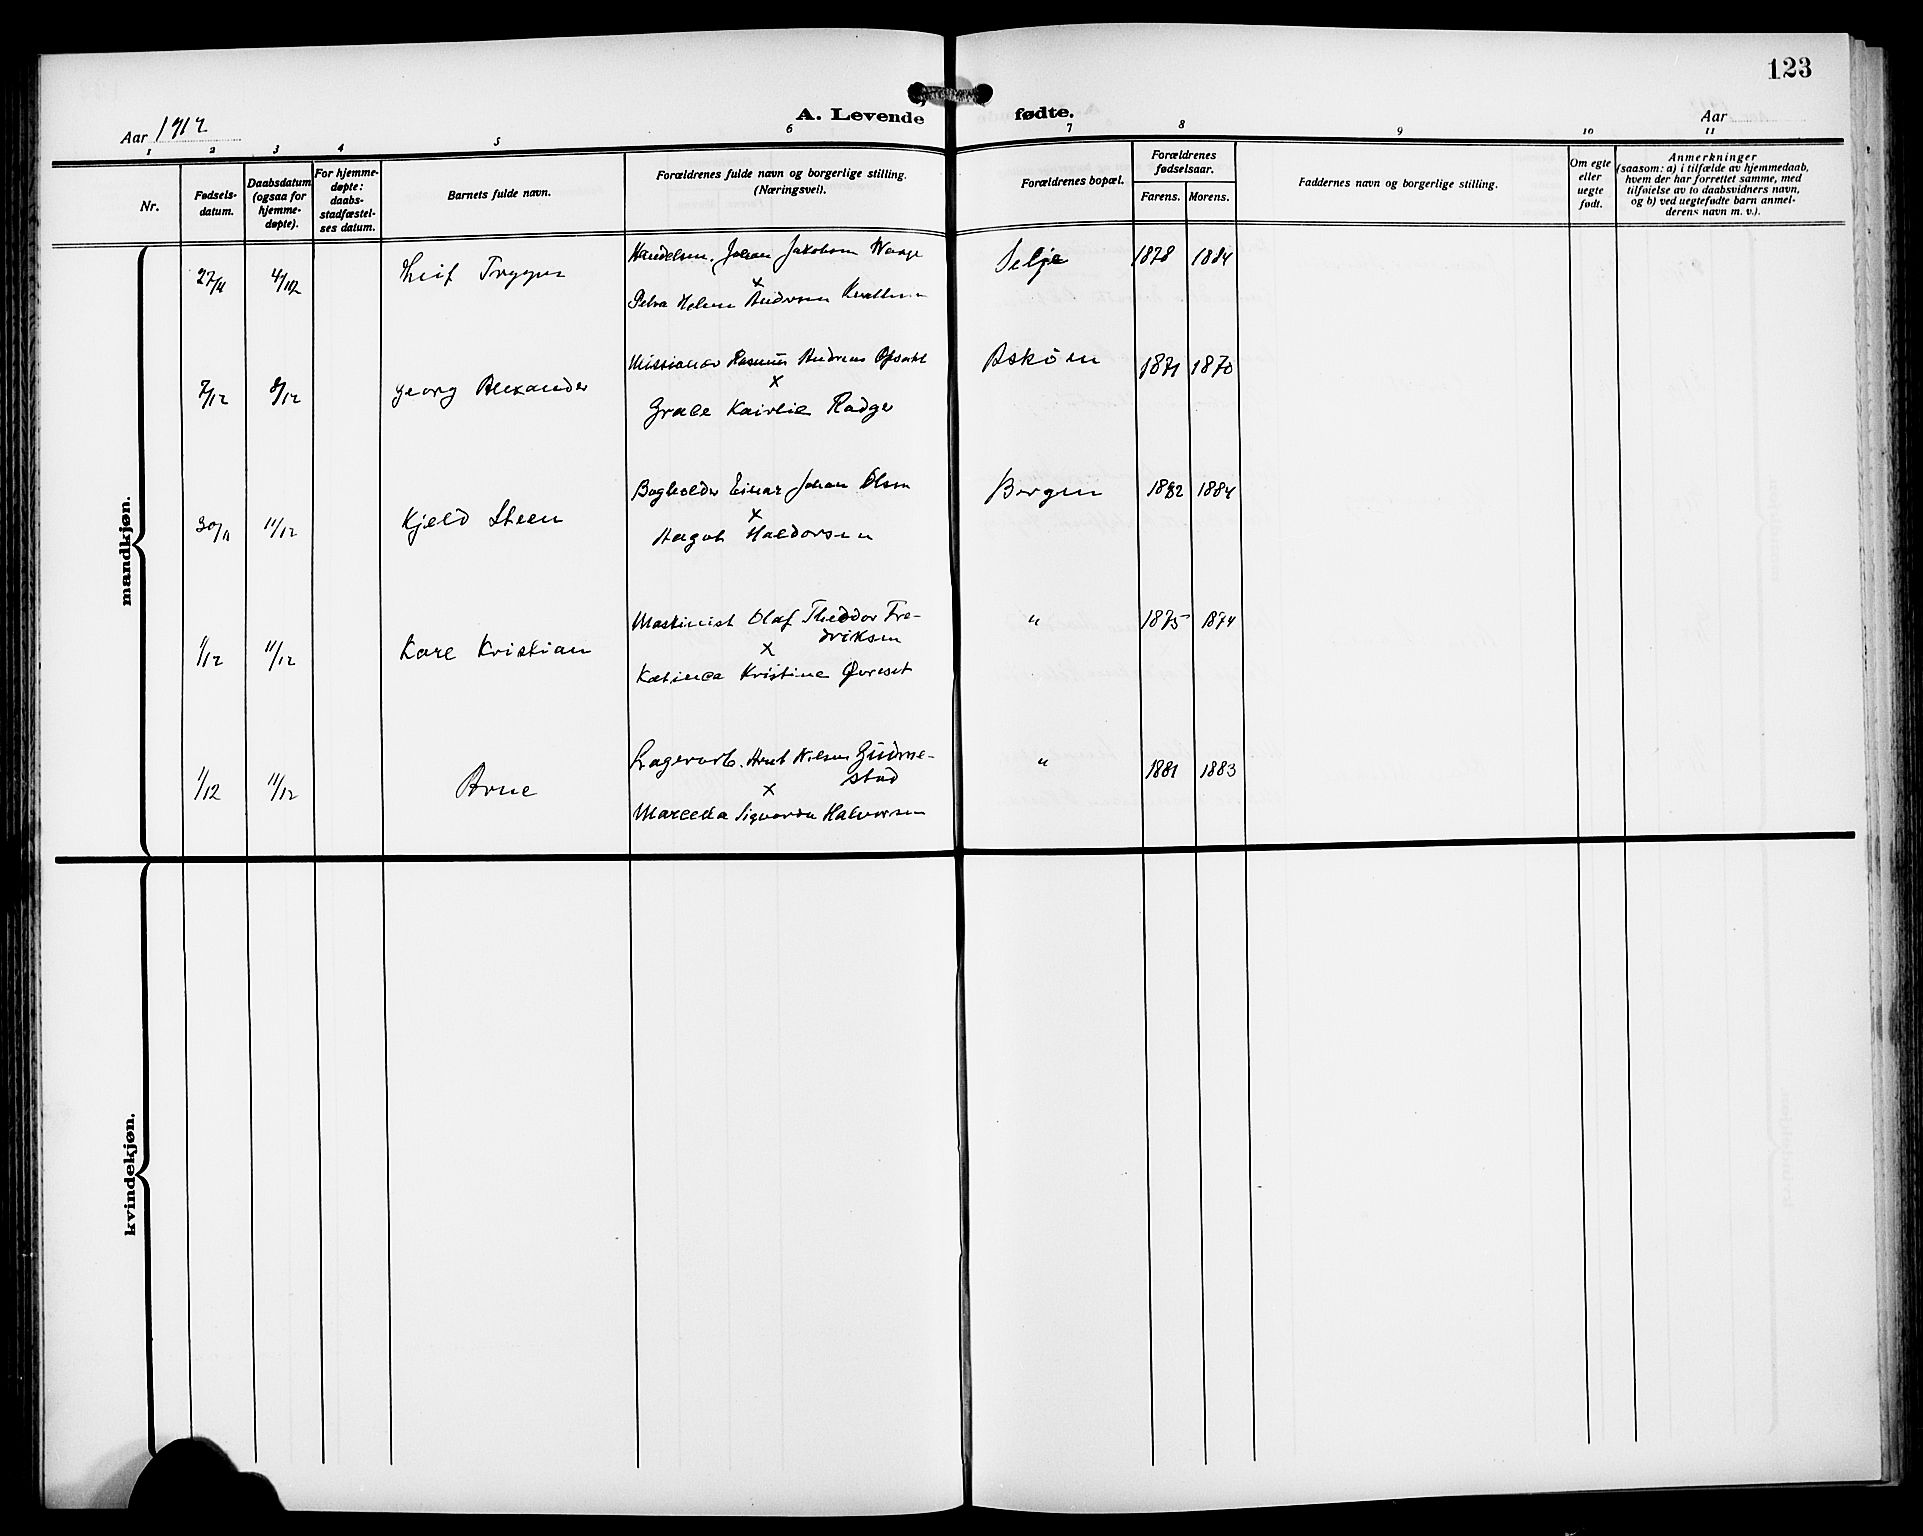 123
A. Levende fødte.
Aar 1912
Aar
1 2 3 4 5 6 7 8 9 10 11
Nr.
Fødsels-
datum.
Daabsdatum
(ogsaa for
hjemme-
døpte).
For hjemme-
døpte:
daabs-
stadfæstel-
ses datum.
Barnets fulde navn.
Forældrenes fulde navn og borgerlige stilling.
(Næringsvei).
Forældrenes bopæl.
Forældrenes
fødselsaar.
Farens. Morens.
Faddernes navn og borgerlige stilling.
Om egte
eller
uegte
født.
Anmerkninger
(saasom: a) i tilfælde av hjemmedaab,
hvem der har forrettet samme, med
tilføielse av to daabsvidners navn,
og b) ved uegtefødte barn anmel-
derens navn m. v.).
mandkjøn.
27/11 4/12 Leif Trygve Handelsm. Johan Jakobsen Waage Selje 1878 1884
x
Petra Helene Andersen
7/12 8/12 Georg Alexander Missionær Rasmus Andreas Opsahl Askøen 1871 1870
x
Grace Rodger
30/11 11/12 Kjeld Steen Bogholder Einar Johan Olsen Bergen 1882 1884
x
Aagot Haldorsen
1/12 11/12 Kare Kristian Maskinist Olaf Theodor Fre- " 1875 1874
driksen
x
Katinca Kristine Øvreset
1/12 11/12 Arne Lagerarb. Arnt Nilsen Gudme- " 1881 1883
stad
x
Marceda Sigvarda Halvorsen
kvindekjøn.